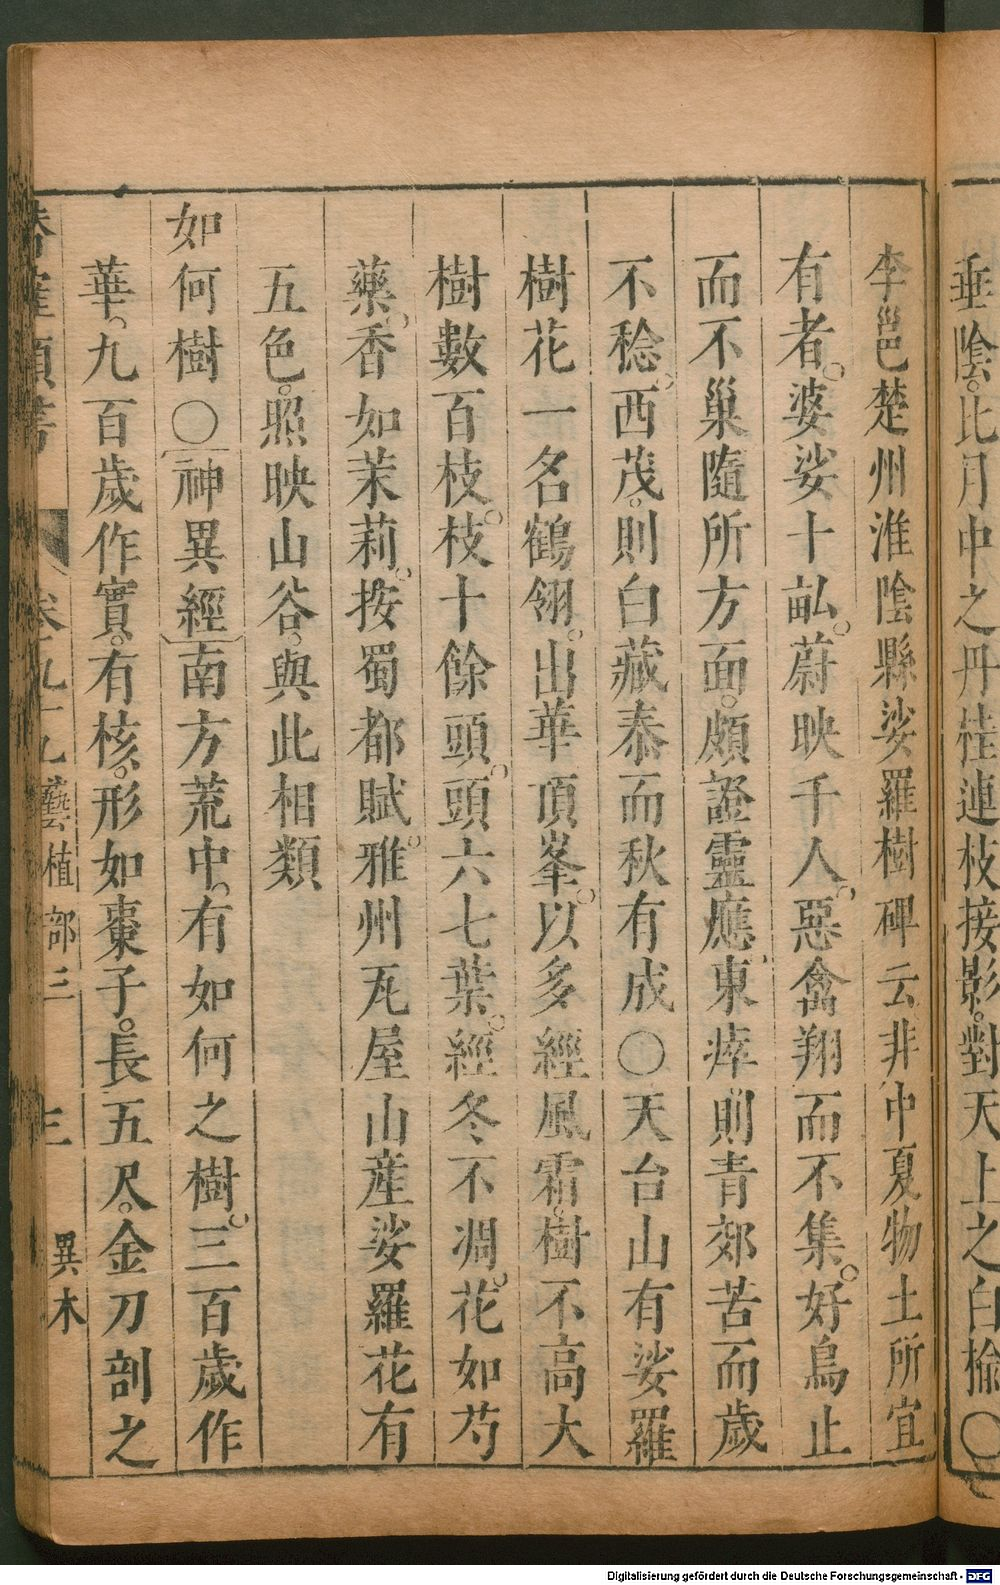 垂陰。比月中之丹桂連枝接影。對天上之白榆〇
李邕楚州淮陰縣娑羅樹碑云非中夏物土所宜
有者。婆娑十畝。蔚映千人。惡禽翔而不集。好鳥止
而不巢隨所方面。頗證靈應。東瘁則青郊苦而歲
不稔。西茂。則白藏泰而秋有成〇天台山有娑羅
樹花一名鶴翎。出華頂峯。以多經風霜。樹不高大
樹數百枝。枝十餘頭。頭六七葉。經冬不凋。花如芍
藥。香如茉莉。按蜀都賦。雅州瓦屋山產娑羅花有
五色。照映山谷。與此相類
如何樹〇神異經南方荒中。有如何之樹。三百歲作
華。九百歲作實。有核。形如棗子。長五尺。金刀剖之
卷九十九 藝植部三 三 異木
Digitalisierung gefördert durch die Deutsche Forschungsgemeinschaft - DFG